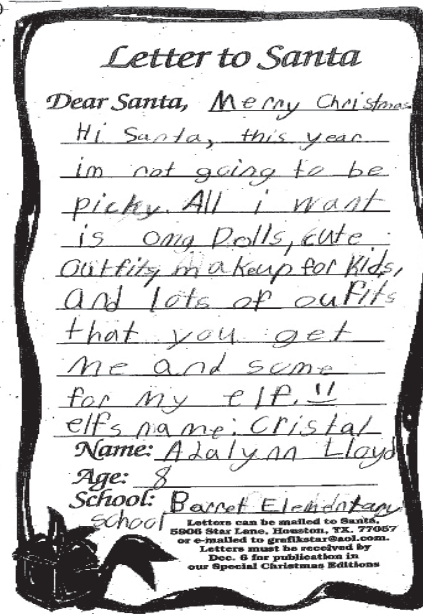 Letter to Santa
Dear Santa, Merry Christmas
Hi Santa, this year
im not going to be
picky. All i want
is omg Dolls, cute
outfits, makeup for kids,
and lots of oufits
that you get
me and some
for my elf. !!
elfs name: Cristal
Name: Adalynn Lloyd
Age: 8
School: Barret Elementary
school
Letters can be mailed to Santa,
5906 Star Lane, Houston, TX. 77057
or e-mailed to grafikstar@aol.com.
Letters must be received by
Dec. 6 for publication in
our Special Christmas Editions